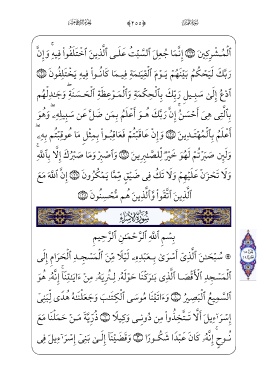 ٱلْمُشْرِكِينَ ۝ إِنَّمَا جُعِلَ ٱلسَّبْتُ عَلَى ٱلَّذِينَ ٱخْتَلَفُوا۟ فِيهِ ۚ وَإِنَّ
رَبَّكَ لَيَحْكُمُ بَيْنَهُمْ يَوْمَ ٱلْقِيَٰمَةِ فِيمَا كَانُوا۟ فِيهِ يَخْتَلِفُونَ ۝
ٱدْعُ إِلَىٰ سَبِيلِ رَبِّكَ بِٱلْحِكْمَةِ وَٱلْمَوْعِظَةِ ٱلْحَسَنَةِ ۖ وَجَٰدِلْهُم
بِٱلَّتِى هِىَ أَحْسَنُ ۚ إِنَّ رَبَّكَ هُوَ أَعْلَمُ بِمَن ضَلَّ عَن سَبِيلِهِۦ ۖ وَهُوَ
أَعْلَمُ بِٱلْمُهْتَدِينَ ۝ وَإِنْ عَاقَبْتُمْ فَعَاقِبُوا۟ بِمِثْلِ مَا عُوقِبْتُم بِهِۦ ۖ
وَلَئِن صَبَرْتُمْ لَهُوَ خَيْرٌ لِّلصَّٰبِرِينَ ۝ وَٱصْبِرْ وَمَا صَبْرُكَ إِلَّا بِٱللَّهِ ۚ
وَلَا تَحْزَنْ عَلَيْهِمْ وَلَا تَكُ فِى ضَيْقٍ مِّمَّا يَمْكُرُونَ ۝ إِنَّ ٱللَّهَ مَعَ
ٱلَّذِينَ ٱتَّقَوا۟ وَّٱلَّذِينَ هُم مُّحْسِنُونَ ۝
سُورَةُ الإِسْرَاءِ
بِسْمِ ٱللَّهِ ٱلرَّحْمَٰنِ ٱلرَّحِيمِ
سُبْحَٰنَ ٱلَّذِىٓ أَسْرَىٰ بِعَبْدِهِۦ لَيْلًا مِّنَ ٱلْمَسْجِدِ ٱلْحَرَامِ إِلَى
ٱلْمَسْجِدِ ٱلْأَقْصَا ٱلَّذِى بَٰرَكْنَا حَوْلَهُۥ لِنُرِيَهُۥ مِنْ ءَايَٰتِنَآ ۚ إِنَّهُۥ هُوَ
ٱلسَّمِيعُ ٱلْبَصِيرُ ۝ وَءَاتَيْنَا مُوسَى ٱلْكِتَٰبَ وَجَعَلْنَٰهُ هُدًى لِّبَنِىٓ
إِسْرَٰٓءِيلَ أَلَّا تَتَّخِذُوا۟ مِن دُونِى وَكِيلًا ۝ ذُرِّيَّةَ مَنْ حَمَلْنَا مَعَ
نُوحٍ ۚ إِنَّهُۥ كَانَ عَبْدًا شَكُورًا ۝ وَقَضَيْنَآ إِلَىٰ بَنِىٓ إِسْرَٰٓءِيلَ فِى